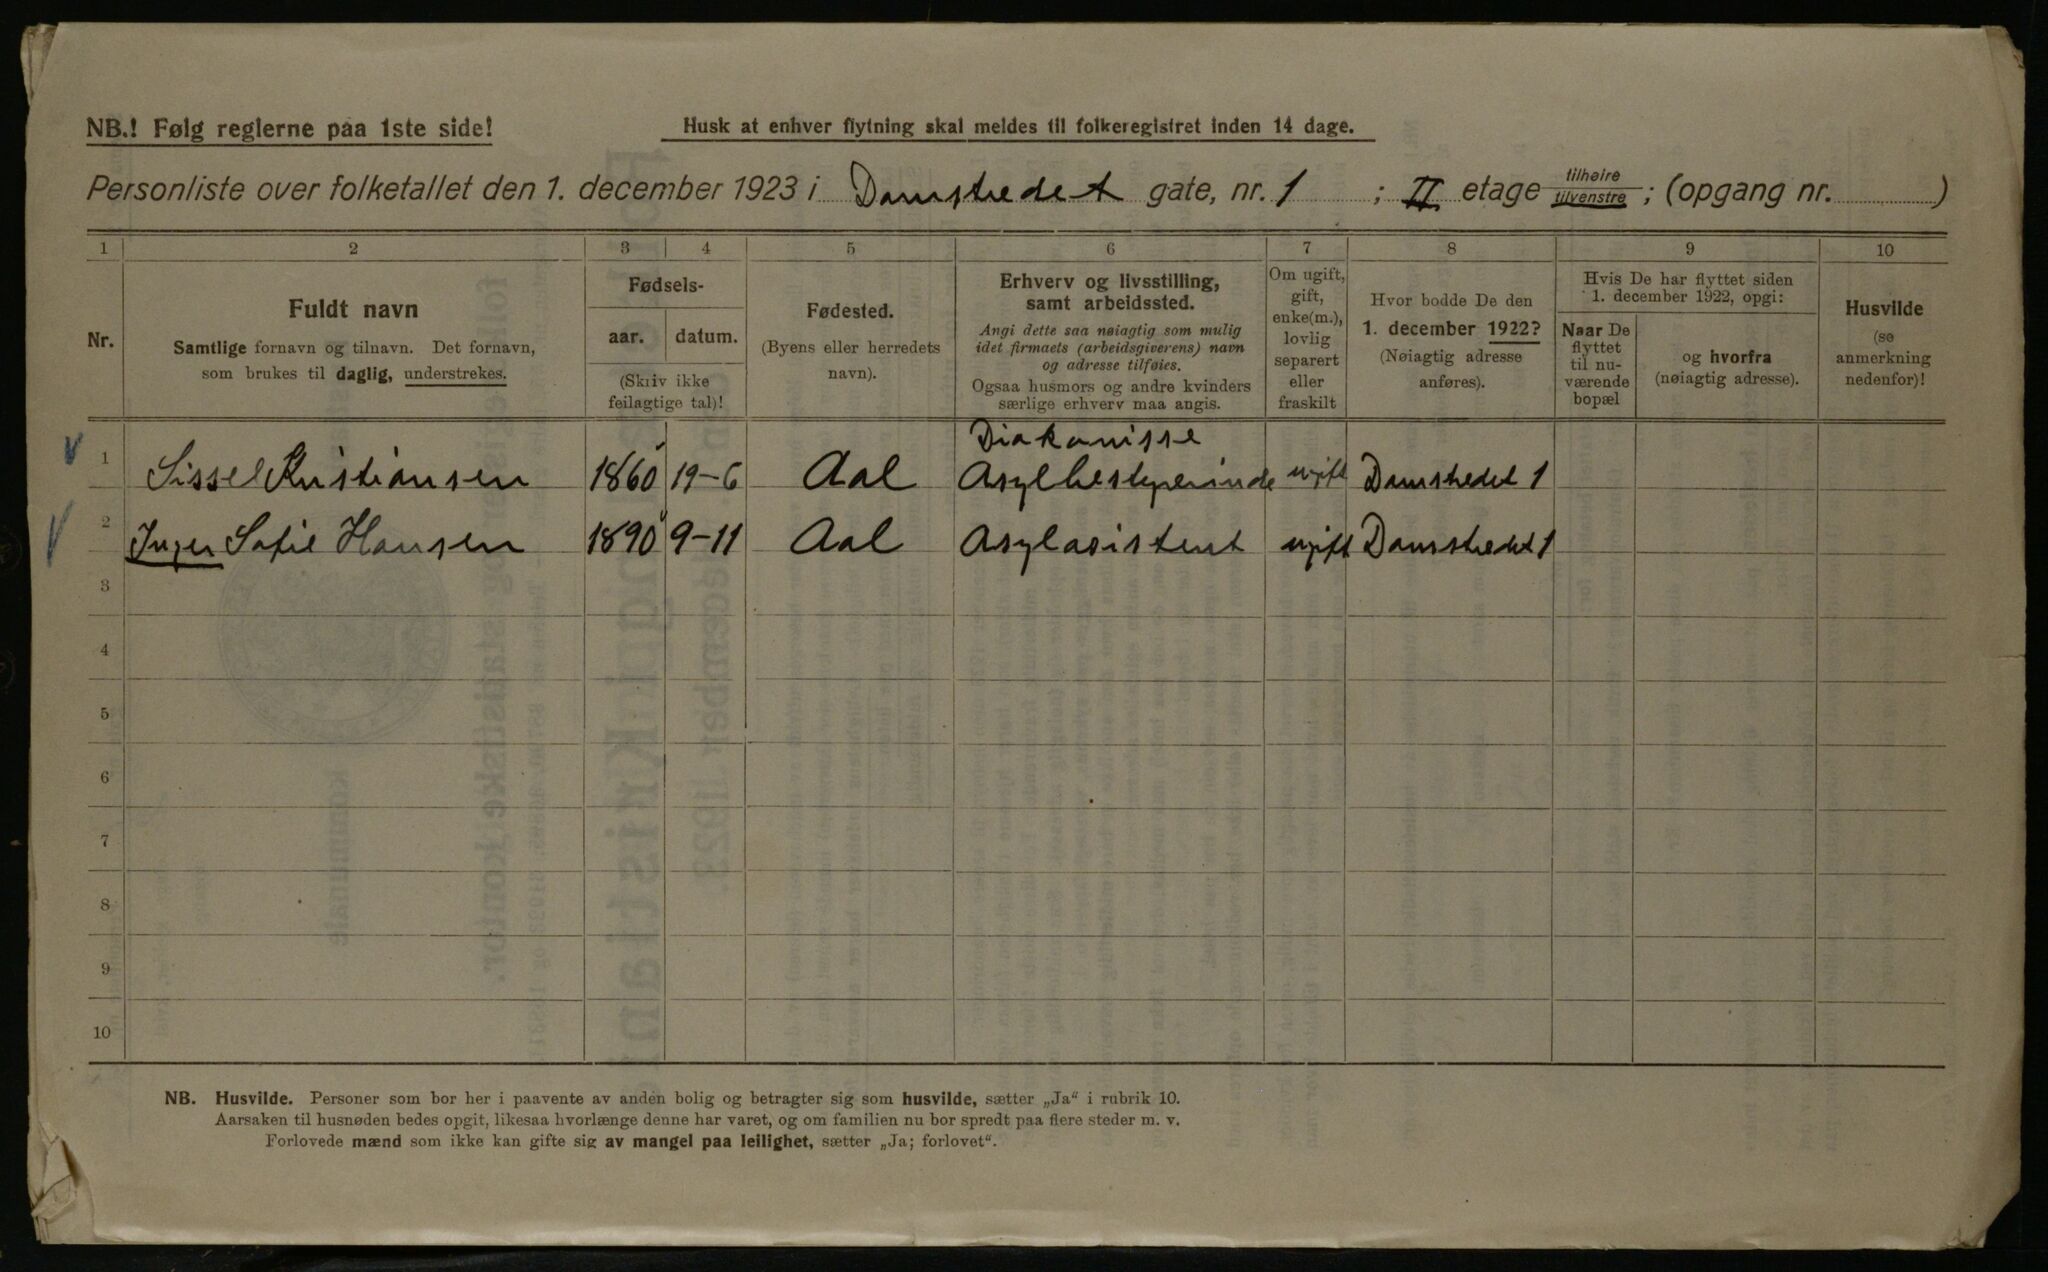 NB.! Følg reglerne paa 1ste side!
Husk at enhver flytning skal meldes til folkeregistret inden 14 dage.
Personliste over folketallet den 1. december 1923 i Damstredet gate, nr. 1 ; II etage tilhøire tilvenstre ; (opgang nr. )
1 2 3 4 5 6 7 8 9 10
Nr.
Fuldt navn
Samtlige fornavn og tilnavn. Det fornavn,
som brukes til daglig, understrekes.
Fødsels-
aar. datum.
(Skriv ikke
feilagtige tal)!
Fødested.
(Byens eller herredets
navn).
Erhverv og livsstilling,
samt arbeidssted.
Angi dette saa nøiagtig som mulig
idet firmaets (arbeidsgiverens) navn
og adresse tilføies.
Ogsaa husmors og andre kvinders
særlige erhverv maa angis.
Om ugift,
gift,
enke(m.),
lovlig
separert
eller
fraskilt
Hvor bodde De den
1. december 1922?
(Nøiagtig adresse
anføres).
Hvis De har flyttet siden
1. december 1922, opgi:
Naar De
flyttet
til nu-
værende
bopæl
og hvorfra
(nøiagtig adresse).
Husvilde
(se
anmerkning
nedenfor)!
Diakonisse
1 Sissel Kristiansen 1860 19-6 Aal Asylbestyrerinde ugift Damstredet 1
2 Inger Sofie Hansen 1890 9-11 Aal Asylasistent ugift Damstredet 1
3
4
5
6
7
8
9
10
NB. Husvilde. Personer som bor her i paavente av anden bolig og betragter sig som husvilde, sætter „Ja“ i rubrik 10.
Aarsaken til husnøden bedes opgit, likesaa hvorlænge denne har varet, og om familien nu bor spredt paa flere steder m. v.
Forlovede mænd som ikke kan gifte sig av mangel paa leilighet, sætter „Ja; forlovet“.